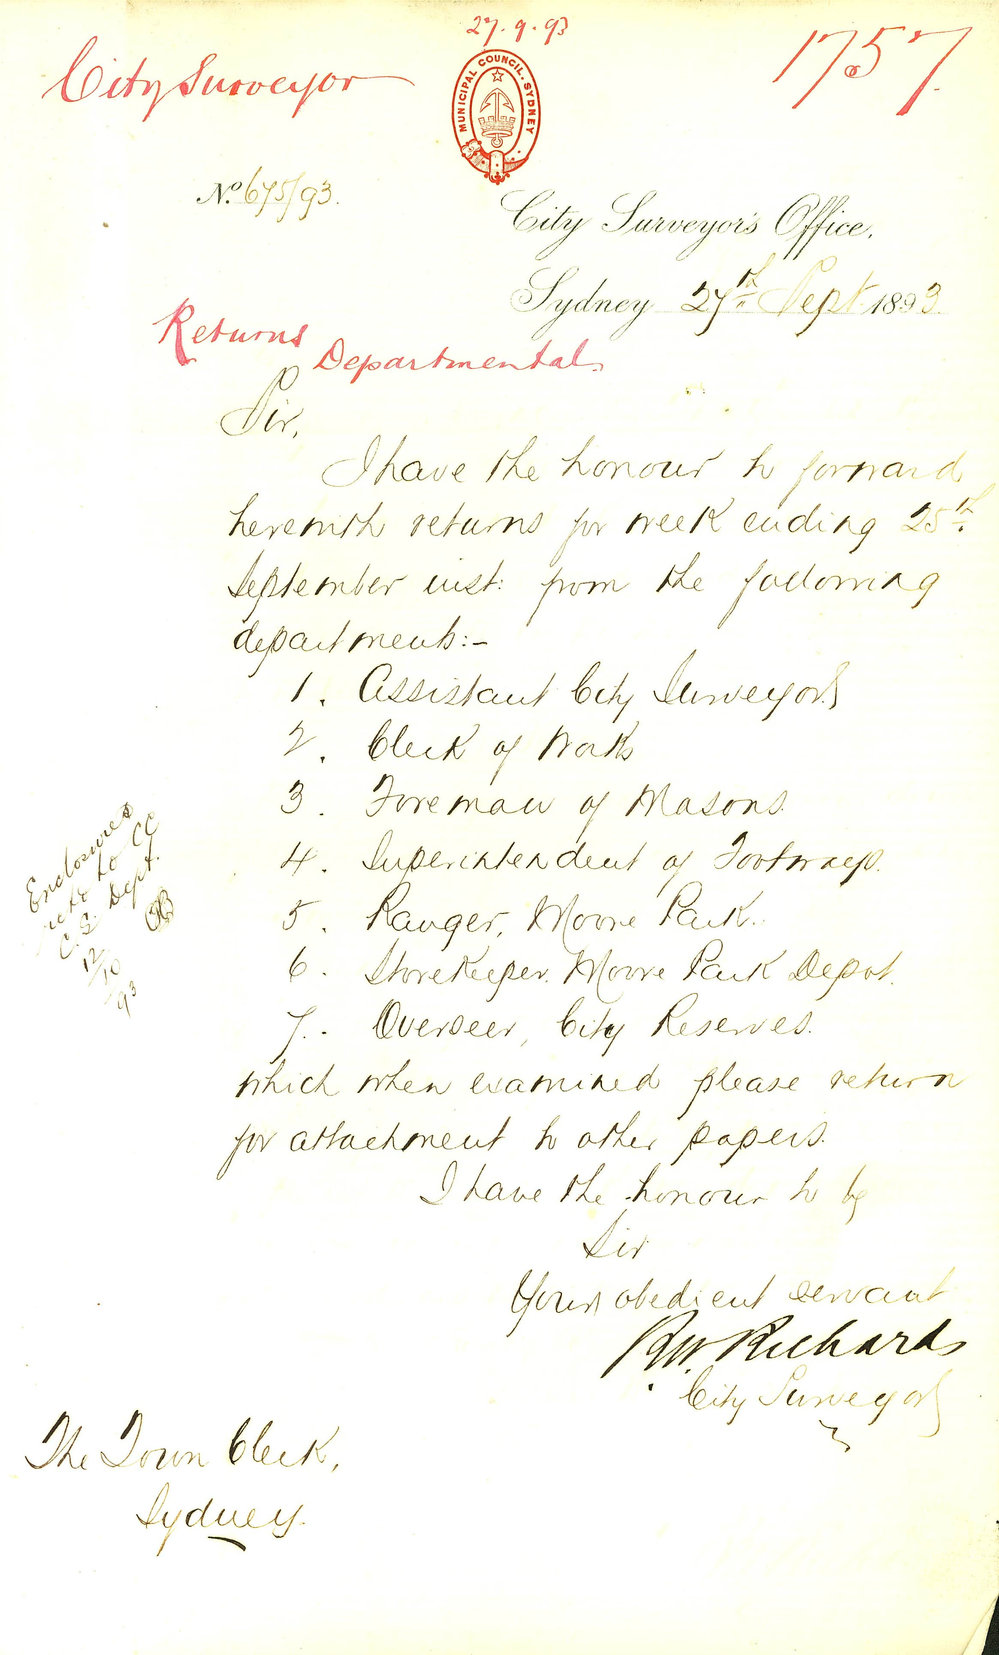 27.9.93
City Surveyor
1757
MUNICIPAL COUNCIL. SYDNEY
No. 675/93.
City Surveyor's Office,
Sydney 27th Sept. 1893.
Returns Departmental.
Sir,
I have the honour to forward
herewith returns for week ending 25th
September inst: from the following
departments:-
1. Assistant City Surveyor
2. Clerk of Works
3. Foreman of Masons.
4. Superintendent of Footways.
5. Ranger, Moore Park.
6. Storekeeper. Moore Park Depot.
7. Overseer, City Reserves.
which when examined please return
for attachment to other papers.
I have the honour to be
Sir
Your obedient servant
R.W. Richards
City Surveyor
Enclosures
to CC
C.S. Dept.
12/10/93
The Town Clerk,
Sydney.